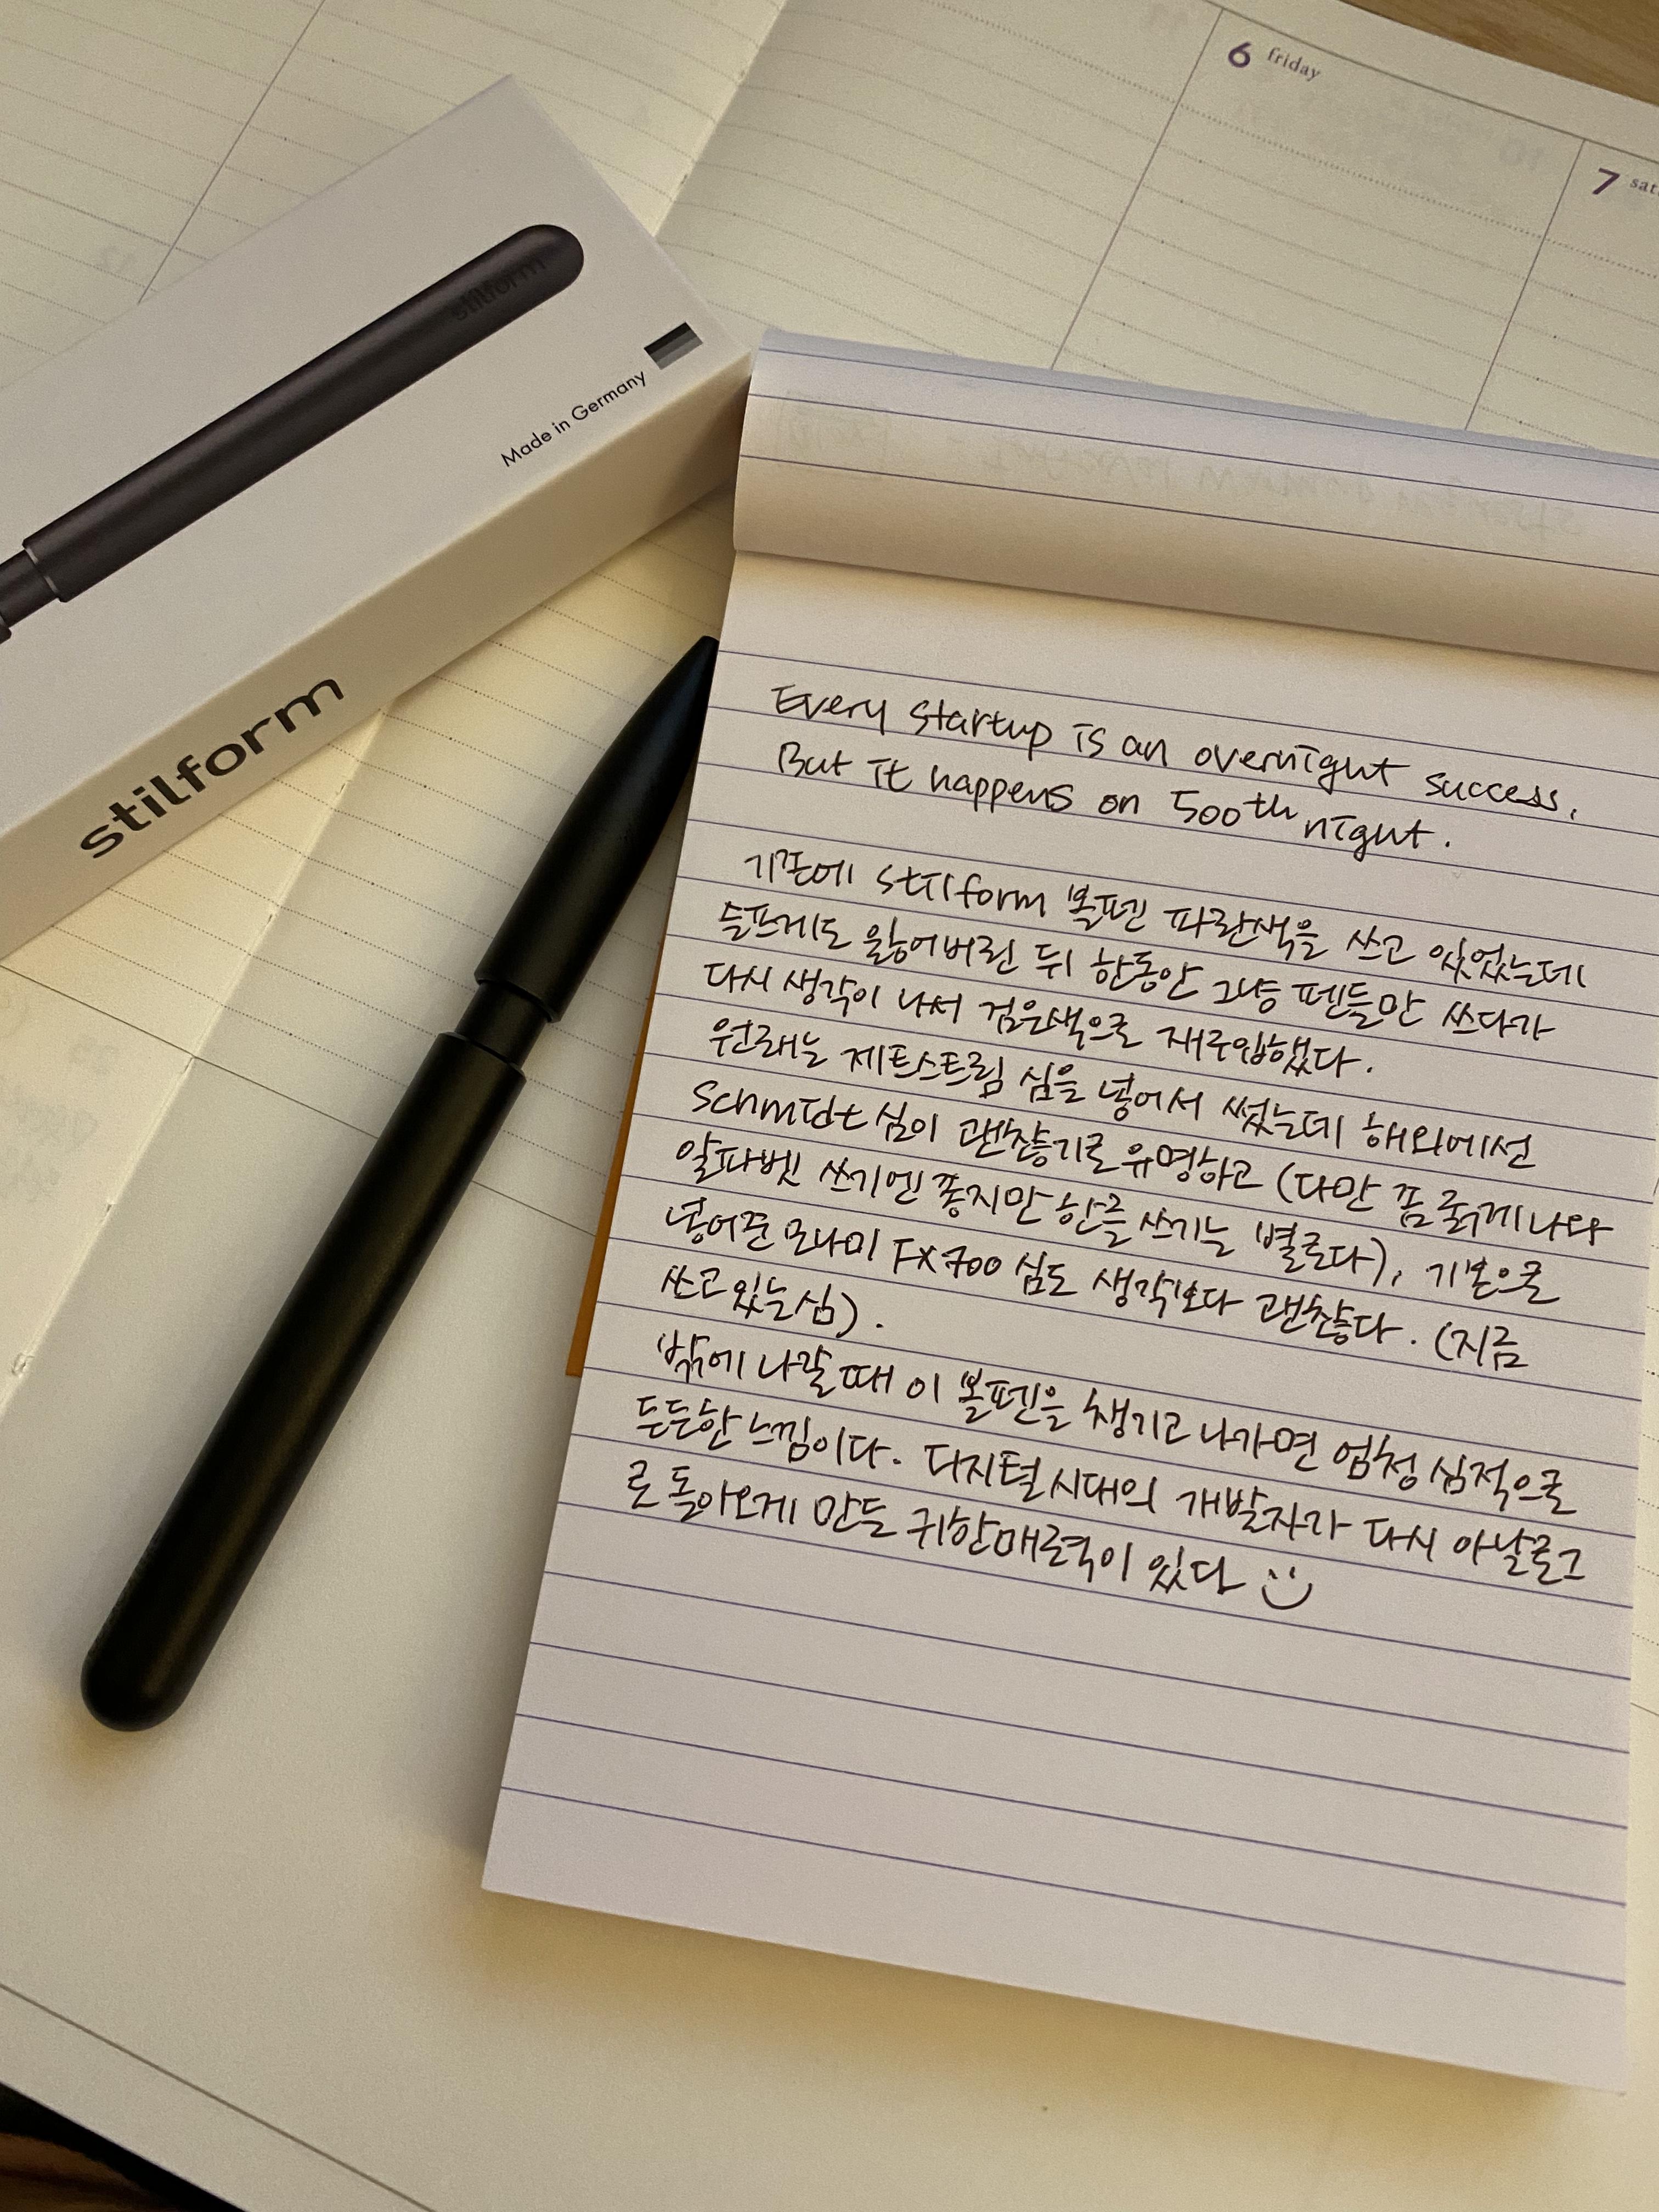 6 friday
7 sat
stilform
Made in Germany
stilform
Every startup is an overnight success.
But it happens on 500th night.
기존에 stilform 볼펜 파란색을 쓰고 있었는데
슬프게도 잃어버린 뒤 한동안 그냥 펜들만 쓰다가
다시 생각이 나서 검은색으로 재구입했다.
원래는 제트스트림 심을 넣어서 썼는데 해외에선
Schmidt 심이 괜찮기로 유명하고 (다만 좀 굵게 나와
알파벳 쓰기엔 좋지만 한글 쓰기는 별로다), 기본으로
넣어준 모나미 FX700 심도 생각보다 괜찮다. (지금
쓰고 있는 심).
밖에 나갈 때 이 볼펜을 챙기고 나가면 엄청 심적으로
든든한 느낌이다. 디지털 시대의 개발자가 다시 아날로그
로 돌아오게 만든 귀한 매력이 있다